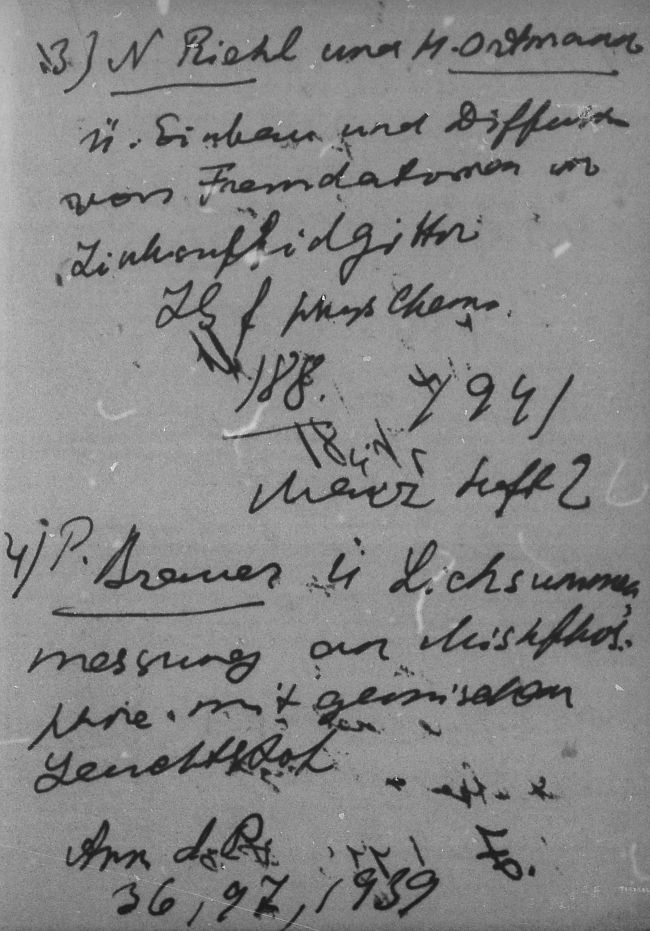 3) N Riehl und H. Ortmann
ü. Einbau und Diffusion
von Fremdatomen im
Zinksulfidgitter
ZS f phys Chem.
188. 1941
März Heft 2
4) P. Brauer ü Lichsummen
messung an Mischphos.
phore. mit gemischten
Ann d. Ph
36, 97, 1939